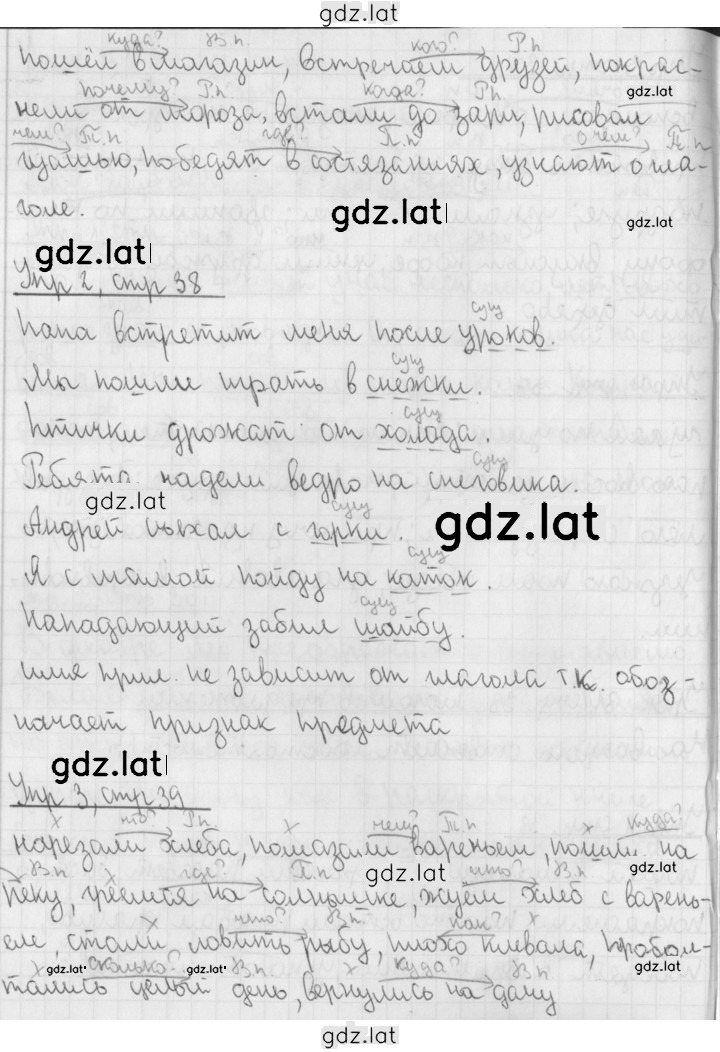 gdz.lat
куда? В.п. кого? Р.п
пошёл в магазин, встречаем друзей, покрас-
почему? Р.п когда? Р.п gdz.lat
нели от мороза, встали до зари, рисовал
чем? П.п где? П.п о чем? П.п
гуашью, победят в состязаниях, узнают о гла-
голе. gdz.lat gdz.lat
gdz.lat
Упр 2, стр 38
сущ
Папа встретит меня после уроков.
сущ
Мы пошли играть в снежки.
сущ
Птички дрожат от холода.
сущ
Ребята надели ведро на снеговика.
gdz.lat сущ gdz.lat
Андрей съехал с горки.
сущ
Я с мамой пойду на каток.
сущ
Нападающий забил шайбу.
имя прил. не зависит от глагола т.к. обоз-
начает признак предмета
gdz.lat
Упр 3, стр 39
х что? Р.п. х чем? П.п х куда?
нарезали хлеба, помазали вареньем, пошли на
В.п. х где? П.п что? В.п gdz.lat
реку, греемся на солнышке, жуем хлеб с варень-
gdz.lat
х что? В.п. как? х
ем, стали ловить рыбу, плохо клевала, пробол-
х gdz.lat сколько? gdz.lat В.п х куда? В.п gdz.lat
тались целый день, вернулись на дачу
gdz.lat